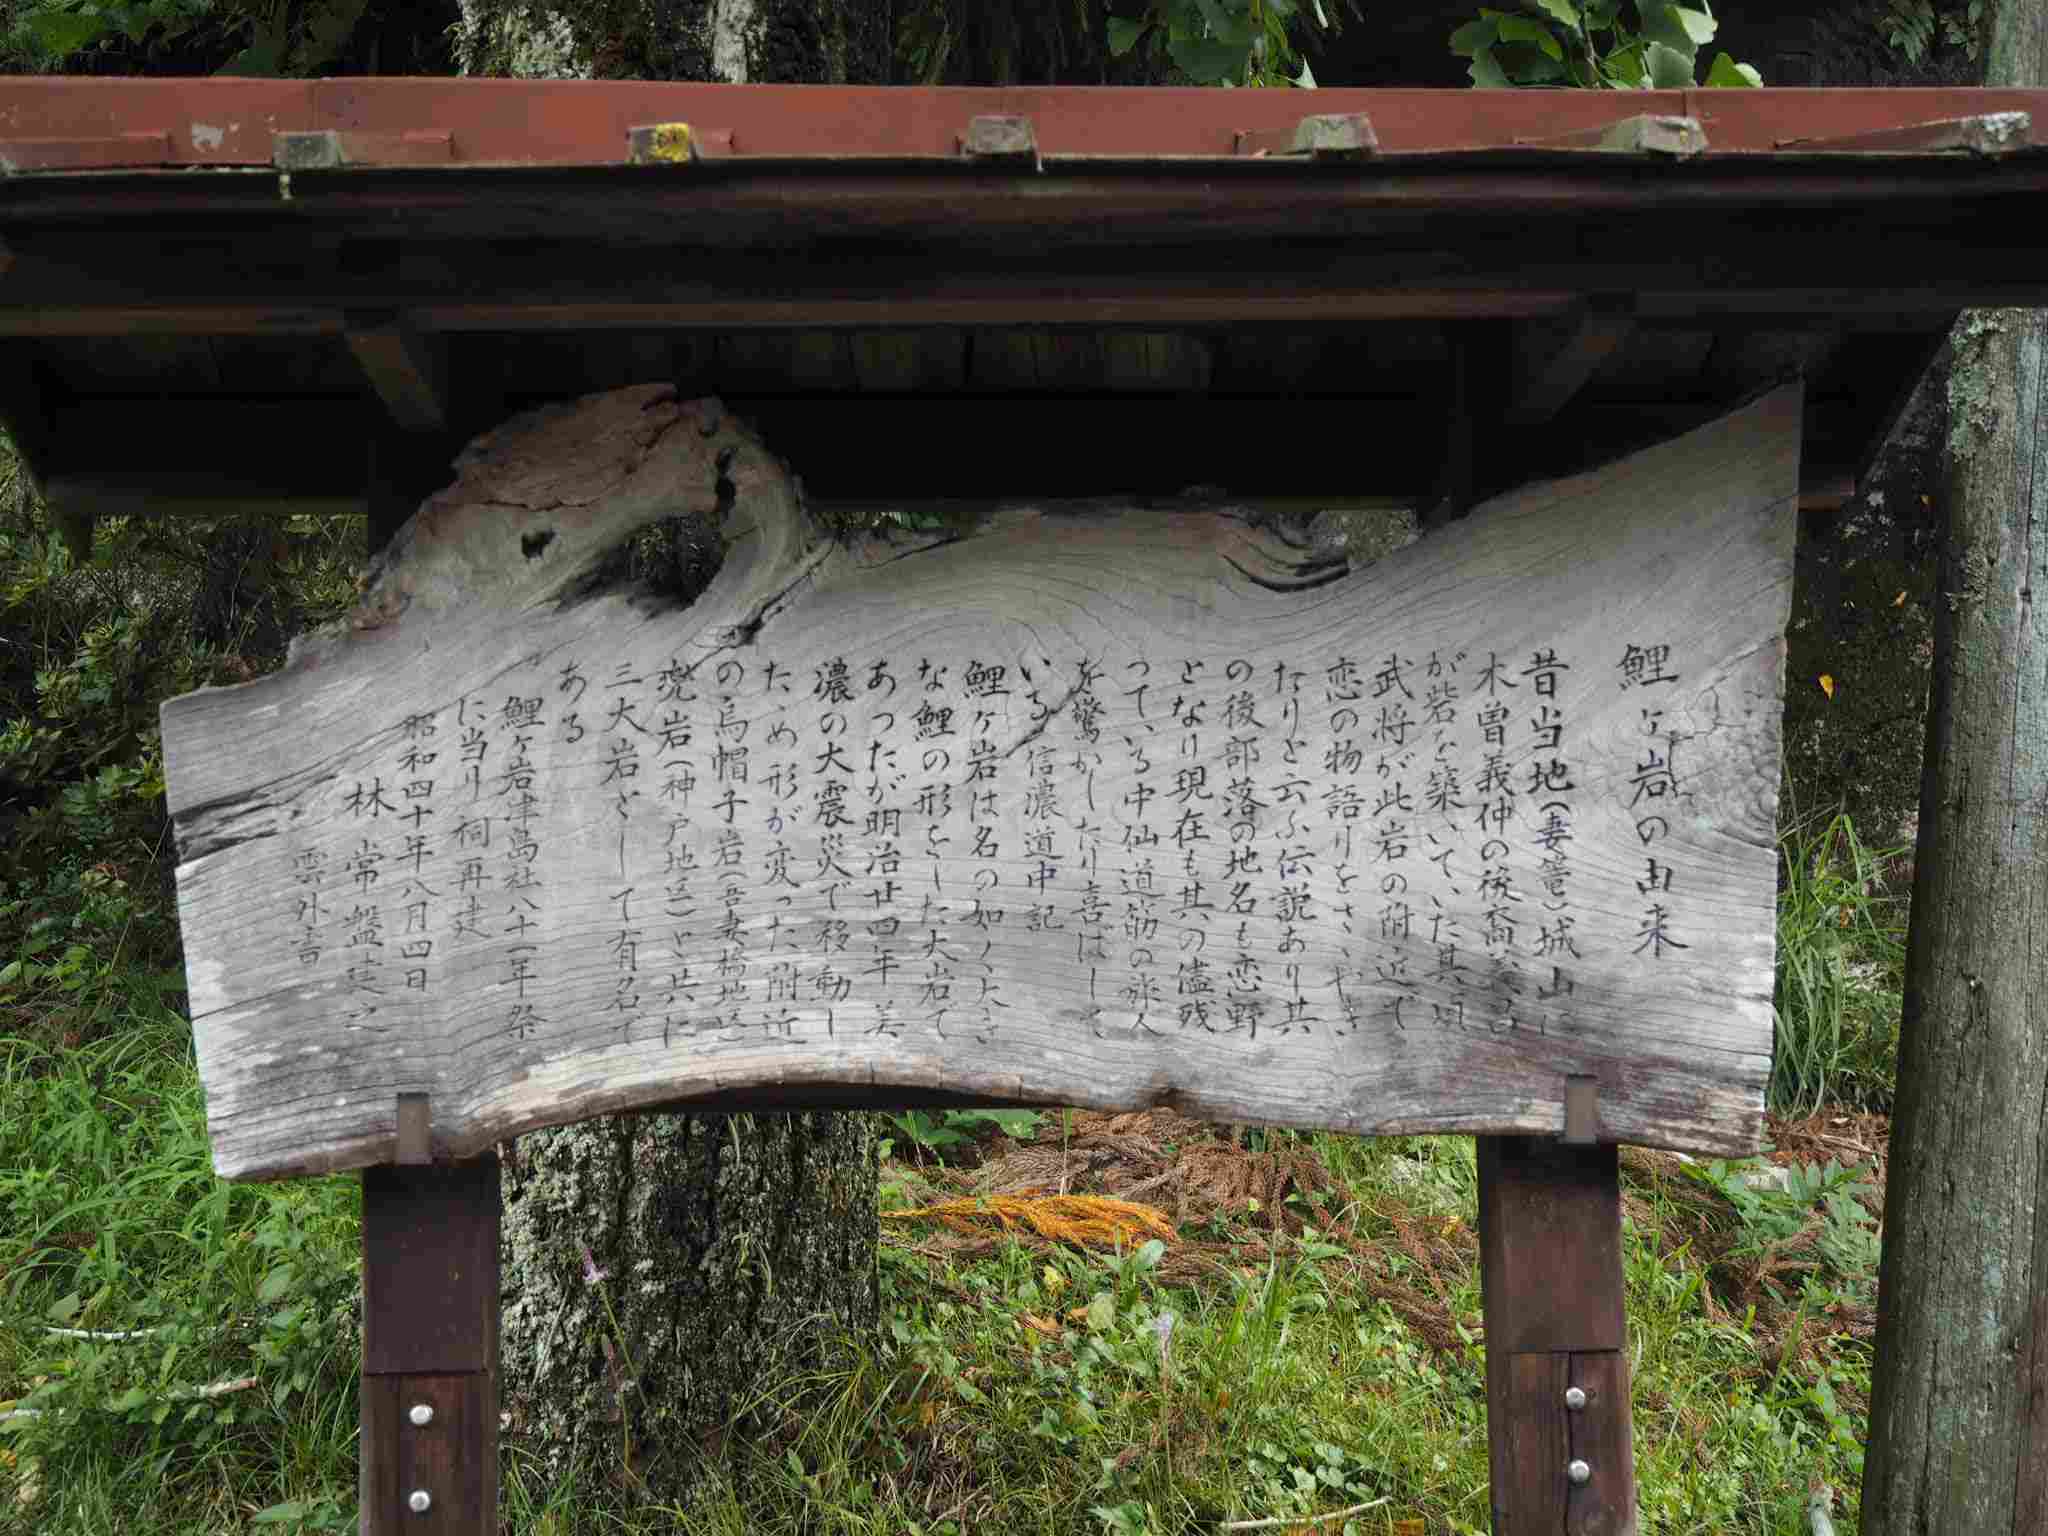 鯉ヶ岩の由来
昔当地(妻篭)城山に
木曽義仲の後裔義昌
が砦を築いていた其頃
武将が此岩の附近で
恋の物語りをさゝやき
たりと云ふ伝説あり共
の後部落の地名も恋野
となり現在も其の儘残
っている中仙道筋の旅人
を驚かしたり喜ばして
いる 信濃道中記
鯉ヶ岩は名の如く大き
な鯉の形をした大岩で
あったが明治廿四年美
濃の大震災で移動し
たため形が変った附近
の烏帽子岩(吾妻橋地区)
兜岩(神戸地区)と共に
三大岩として有名で
ある
鯉ヶ岩津島社八十一年祭
に当り祠再建
昭和四十年八月四日
林 常盤建之
雲外書